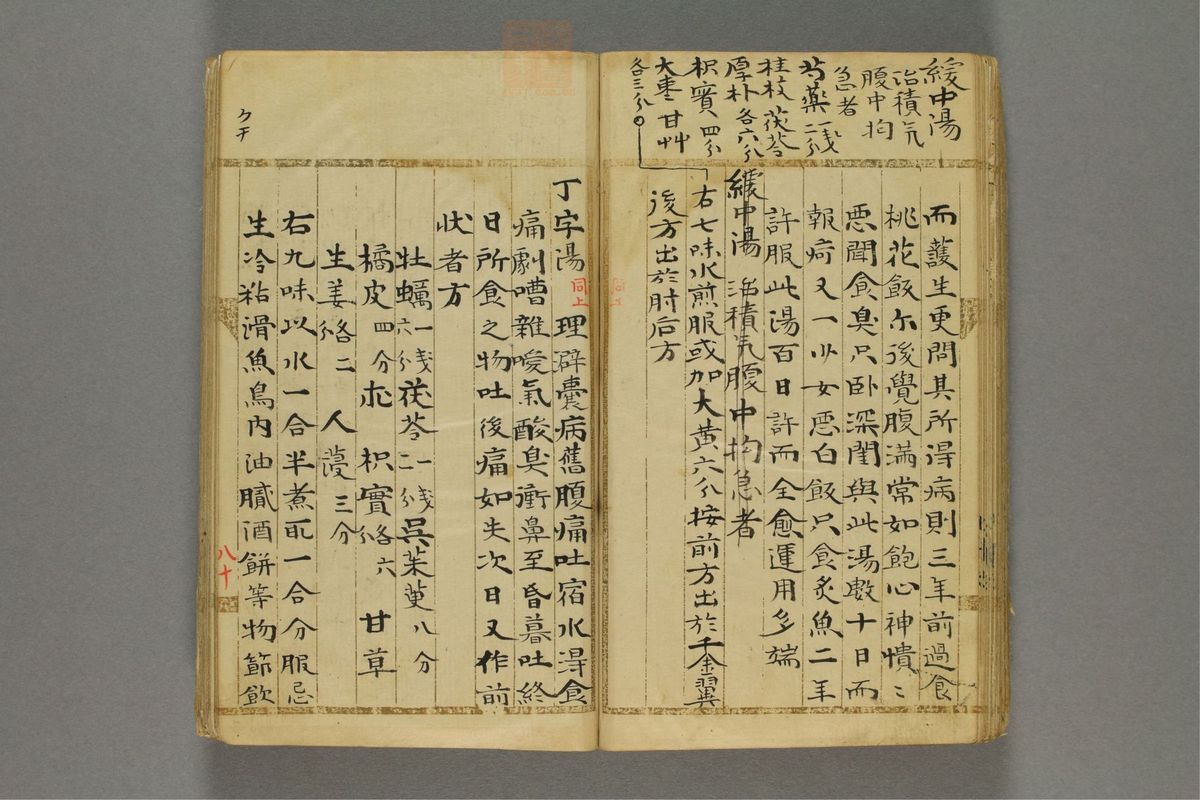 緩中湯
治積氣
腹中拘
急者
芍藥一戔二分
桂枝 茯苓
厚朴各六分
枳實四分
大棗 甘艸
各三分
而護生更問其所得病則三年前過食
桃花飯尓後覺腹滿常如飽心神憒〻
惡聞食臭只卧深閨與此湯數十日而
報疴又一少女惡白飯只食炙魚二年
許服此湯百日許而全愈運用多端
緩中湯 治積氣腹中拘急者
右七味水煎服或加大黄六分按前方出於千金翼
後方出於肘后方
丁字湯 同上 理澼囊病舊腹痛吐宿水得食
痛劇嘈雜噯氣酸臭衝鼻至昏暮吐終
日所食之物吐後痛如失次日又作前
状者方
牡蠣一戔六分茯苓一戔二分呉茱萸八分
橘皮四分朮 枳實各六分 甘草
生姜各二分 人薓三分
右九味以水一合半煮取一合分服忌
生冷粘滑魚鳥肉油膩酒餅等物節飲
クチ
八十